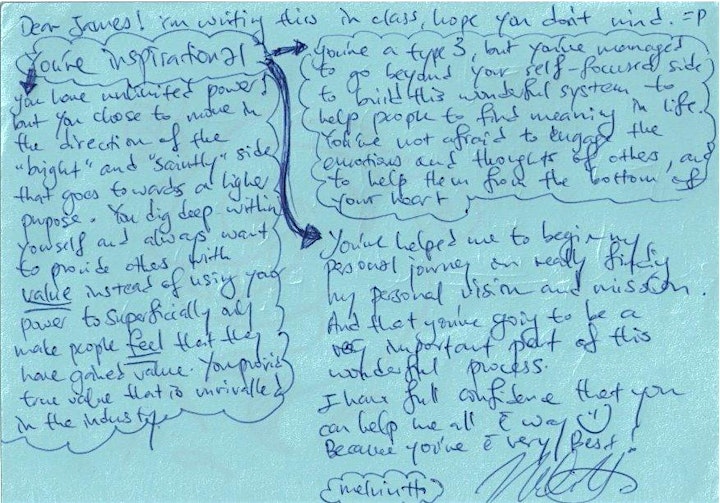 Dear James! I'm writing this in class, hope you don't mind. =P
You're inspirational
You have unlimited power,
but you chose to move in
the direction of the
"bright" and "saintly" side
that goes towards a higher
purpose. You dig deep within
yourself and always want
to provide others with
value instead of using your
power to superficially only
make people feel that they
have gained value. You provide
true value that is unrivalled
in the industry.
You're a type 3, but you've managed
to go beyond your self-focused side
to build this wonderful system to
help people to find meaning in life.
You're not afraid to engage the
emotions and thoughts of others, and
to help them from the bottom of
your heart.
You've helped me to begin my
personal journey in really finding
my personal vision and mission.
And that you're going to be a
very important part of this
wonderful process.
I have full confidence that you
can help me all ē way :)
Because you're ē very Best!